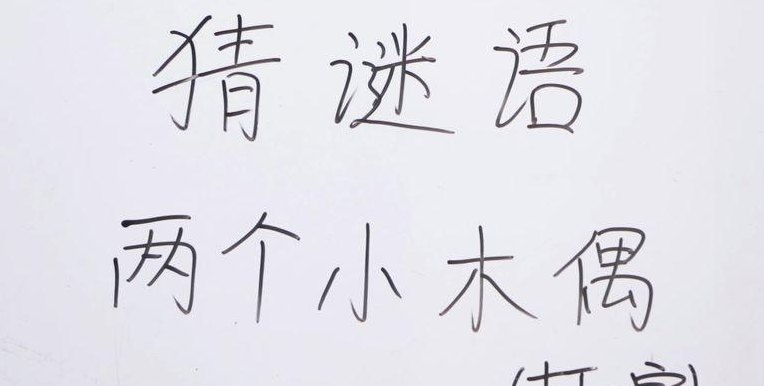 猜谜语
两个小木偶